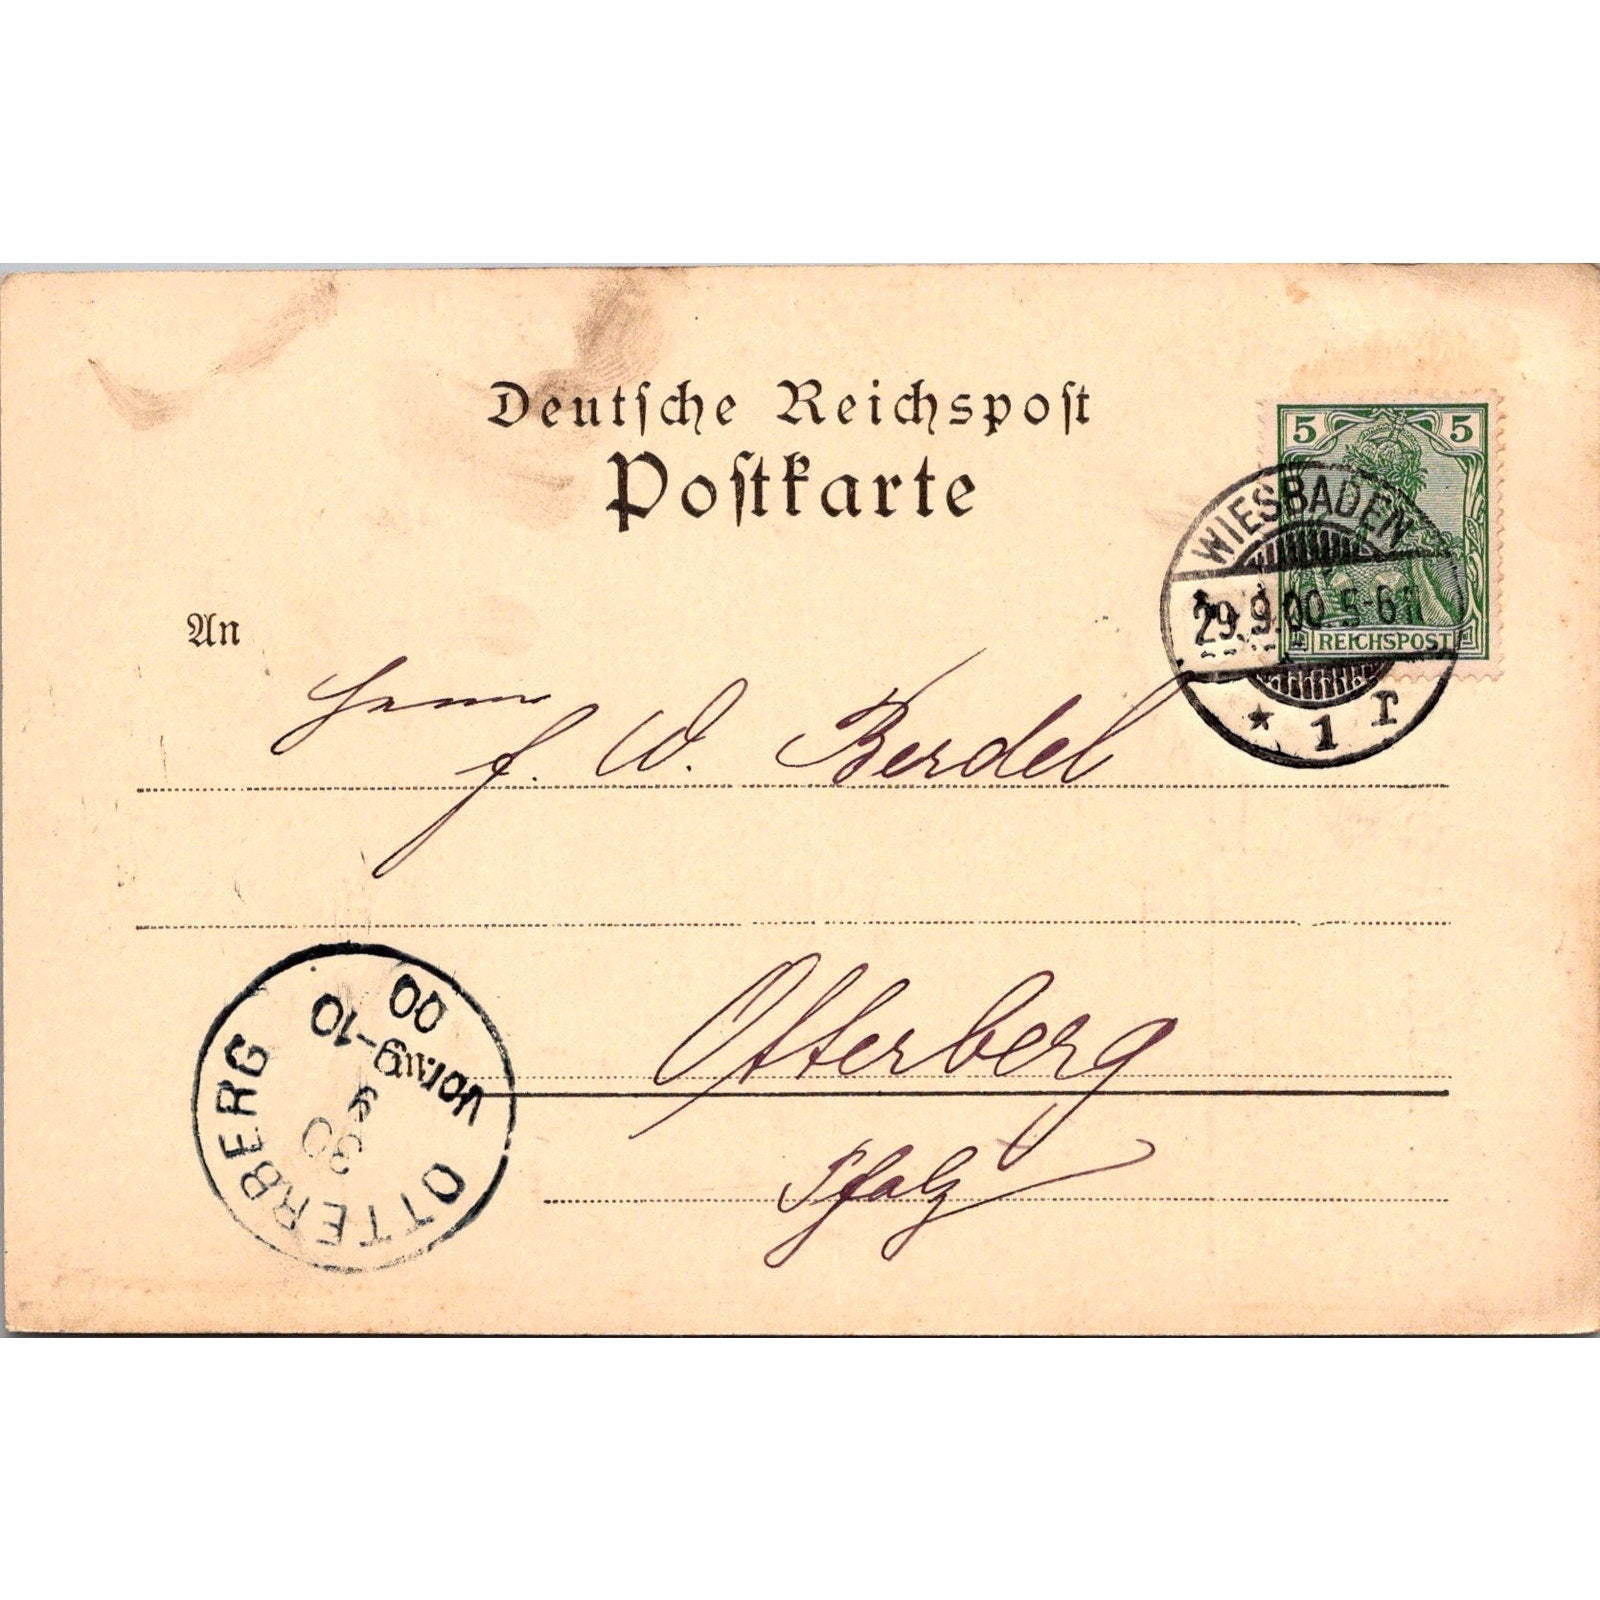 Deutsche Reichspost
Postkarte
5 5
REICHSPOST
WIESBADEN
29.9.00. 5-6N
* 1 r
An
Herrn
F. W. Berdel
Otterberg
Pfalz
OTTERBERG
30
Vorm 9-10
00